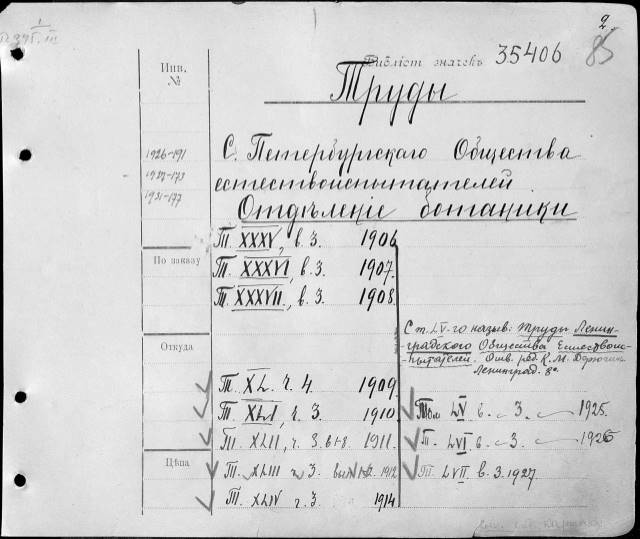 2
85
Библіот. значекъ 35406
Инв.
№
Труды
1926-191
1927-173
1931-177
С. Петербургскаго Общества
естествоиспытателей.
Отдѣленіе ботаники
Т. XXXV, в. 3. 1906
По заказу
Т. XXXVI, в. 3. 1907.
Т. XXXVII, в. 3. 1908.
С т. LV-го назыв: Труды Ленин-
градского Общества Естествоис-
пытателей. Отв. ред. К. М. Дерюгин
Ленинград. 8°
Откуда
Т. XL. ч. 4. 1909.
Т. XLI, ч. 3. 1910
Том LV в. 3. 1925.
Т. XLII, ч. 3. в 1-8. 1911.
Т. LVI в. 3. 1926
Цѣна
Т. XLIII ч. 3. вып. 1-2. 1912
Т. LVII. в. 3. 1927.
Т. XLIV ч. 3. 1914